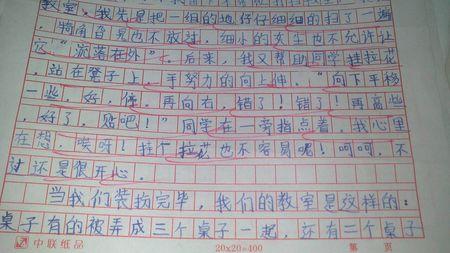 教室。我先是把一组的地仔仔细细的扫了一遍
犄角旮旯也不放过，细小的灰尘也不允许让
它“流落在外”。后来，我又帮助同学挂拉花
，站在凳子上，手努力的向上伸。“向下平移
一些，好，停。再向右，错了！错了！再高些
，好了，贴吧！”同学在一旁指点着，我心里
在想，唉呀！挂个拉花也不容易呢！呵呵，不
过还是很开心。
当我们装扮完毕，我们的教室是这样的：
桌子有的被弄成三个桌子一起，还有二个桌子
中联纸品
20×20=400
第 页